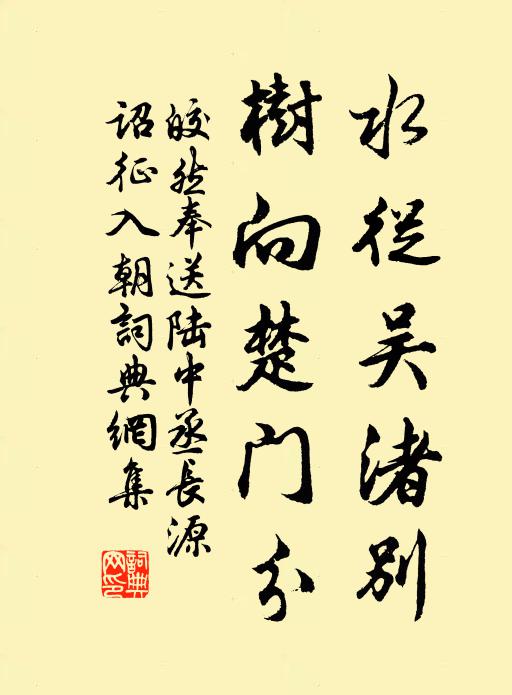 水從吴渚別
樹向楚门分
皎然奉送陆中丞長源
诏征入朝詞典網集
詞典网印